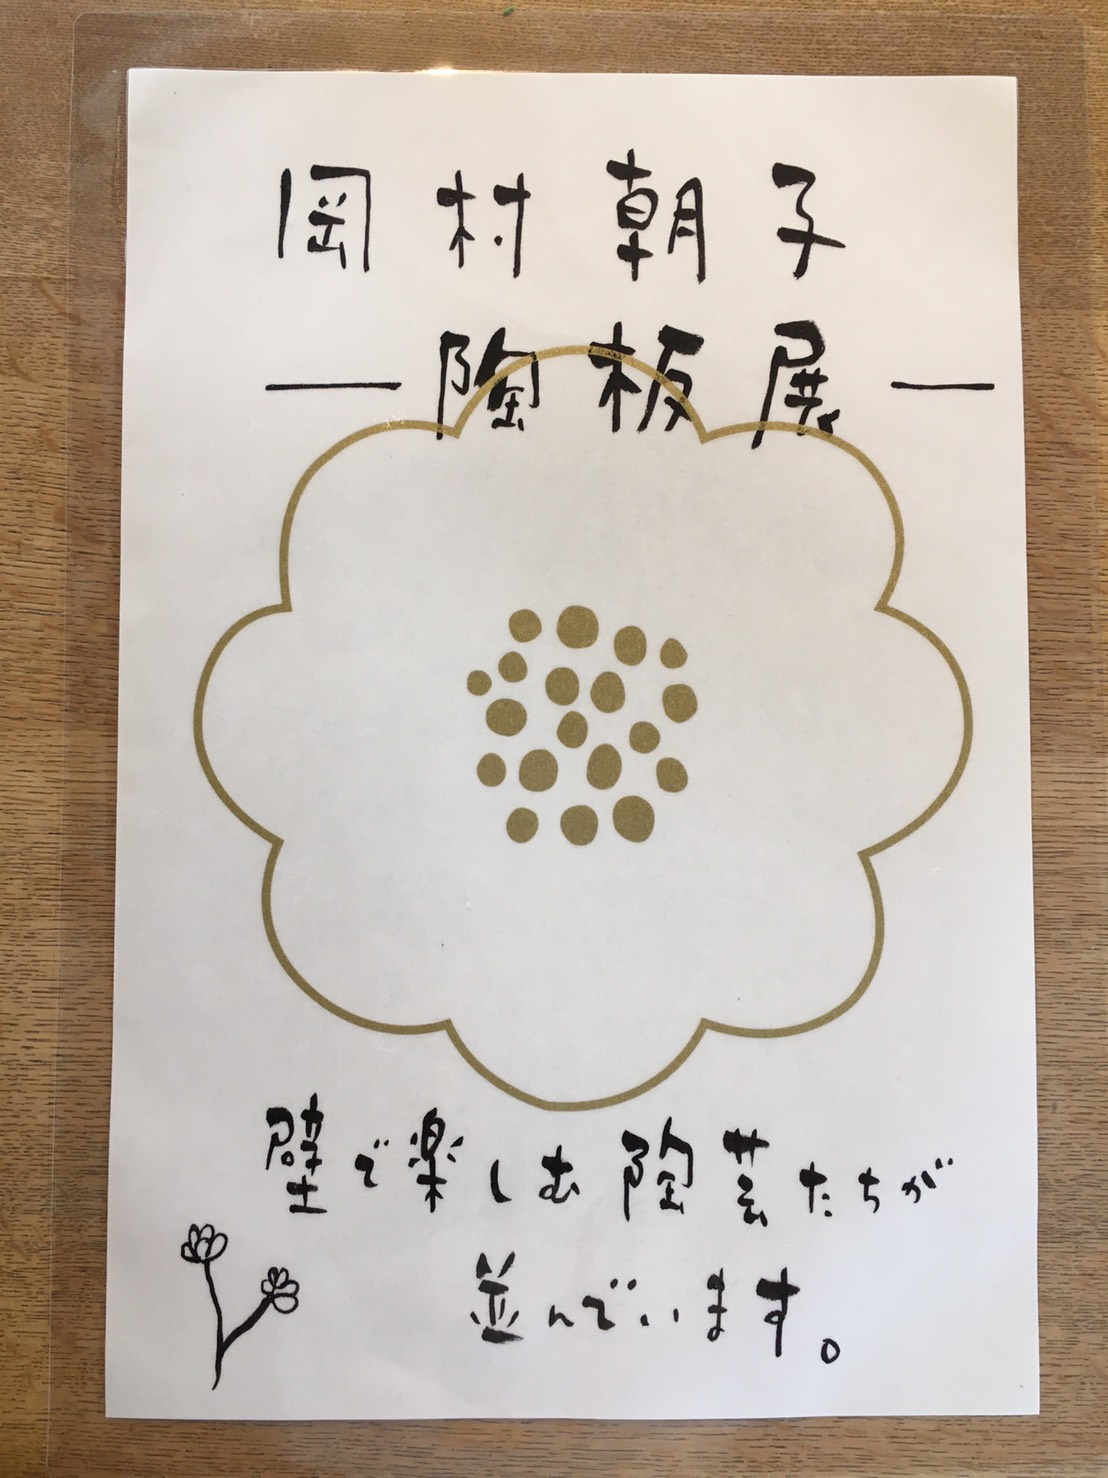 岡村朝子
―陶板展―
壁で楽しむ陶芸たちが
並んでいます。